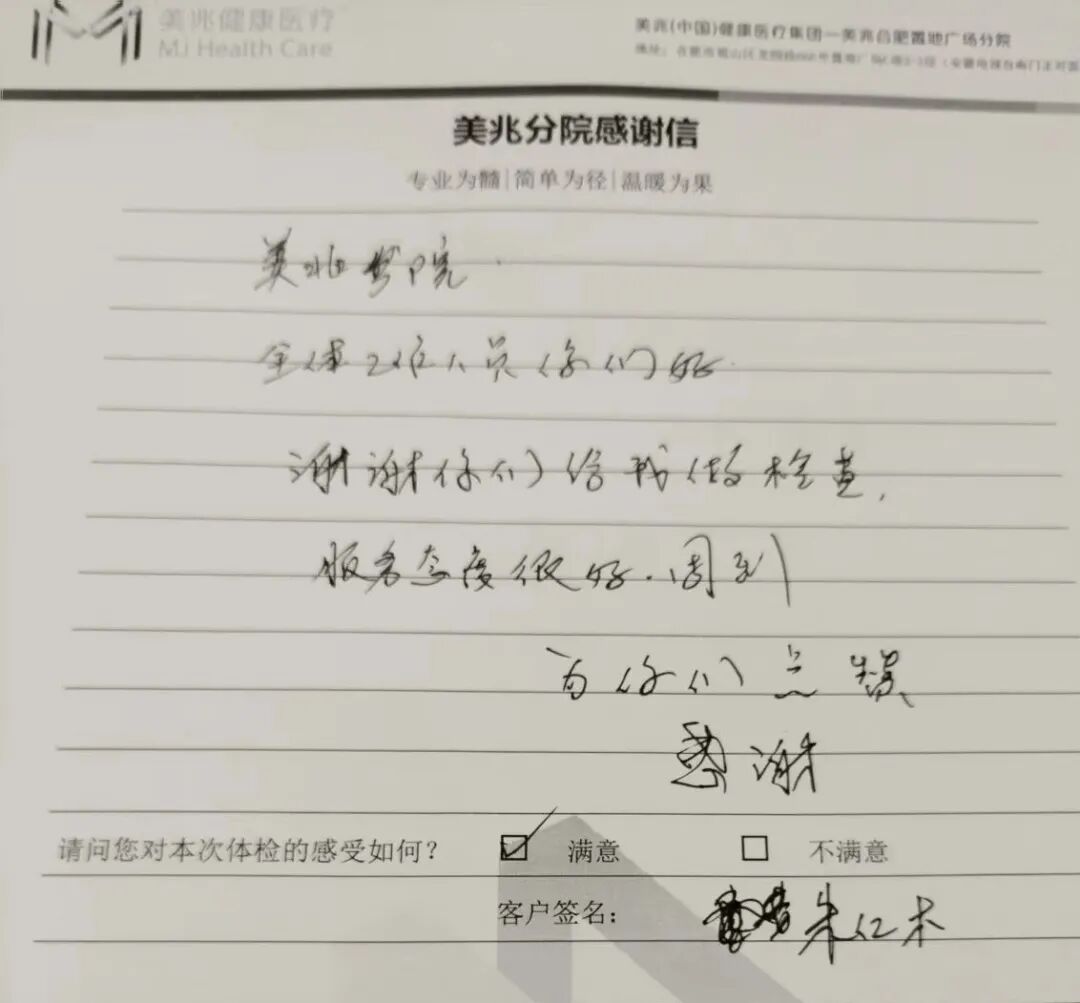 美兆健康医疗
MJ Health Care
美兆(中国)健康医疗集团—美兆合肥置地广场分院
美兆分院感谢信
专业为髓|简单为径|温暖为果
美兆分院
全体工作人员你们好
谢谢你们给我做检查,
服务态度很好.周到
为你们点赞
感谢
请问您对本次体检的感受如何? ☑ 满意 □ 不满意
客户签名: 朱红木